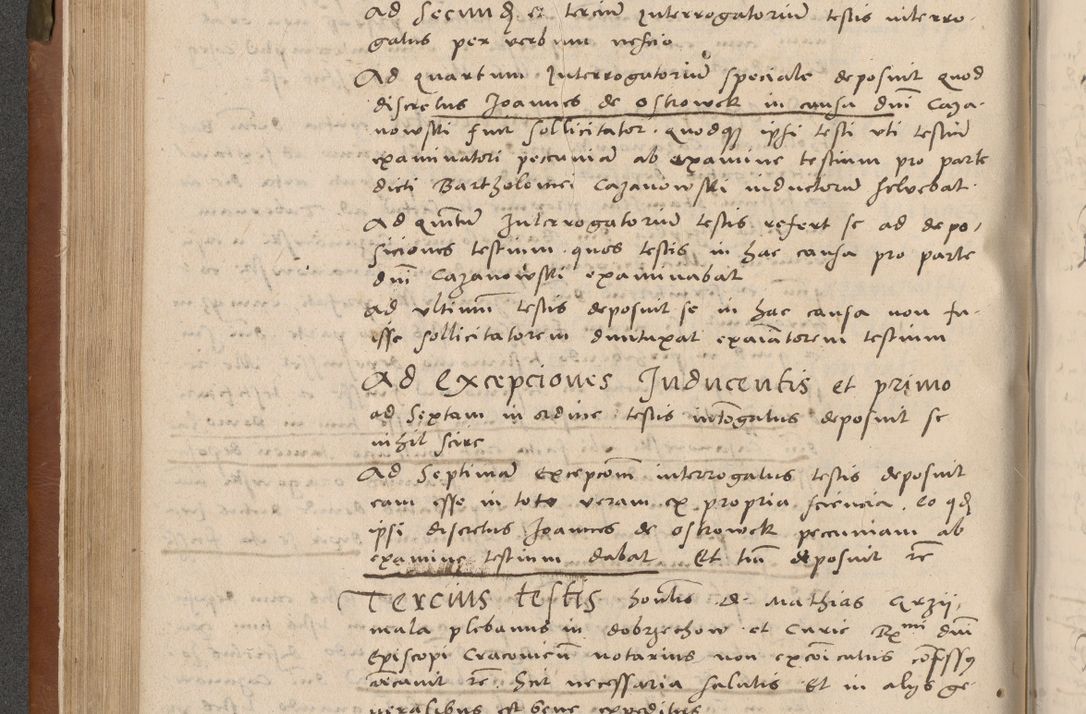 Ad Secundũ et tercium Interrogatoriũ testis interro-
gatus per verbum nescio
Ad quartum Interrogatoriũ speciale deposuit quod
discretus Joannes de Ostrowek in causa dnĩ Caza-
nowski fuit sollicitator. quodq̃ ipsi testi uti testiũ
examinatori pecuniã ab examine testium pro parte
dicti Bartholomei Cazanowski inductorũ solvebat.
Ad quintũ Interrogatoriũ testis refert se ad depo-
siciones testium. quos testis in hac causa pro parte
dnĩ Cazanowski examinabat
Ad ultimũ testis deposuit se in hac causa non fu-
isse sollicitatorem duntaxat exaĩatorem testium
Ad Excepciones Inducentis et primo
ad Sextam in ordine testis intrõgatus deposuit se
nihil scire
Ad Septimã Excepcoẽm interrogatus testis deposuit
eam esse in toto veram ex propria sciencia. eo qđ
ipsi discretus Joannes de Ostrowek pecuniam ab
examine testium dabat Et tm̃ deposuit rẽ
Tercius testis honblĩs d. Mathias Grzii-
mala plebanus in dobrzechow et Curie Rmi dnĩ
Episcopi Cracovieñ notarius non excõicatus cõfessus
iuravit rẽ. scit necessaria salutis Et in alys ge-
neralibus est bene expeditus